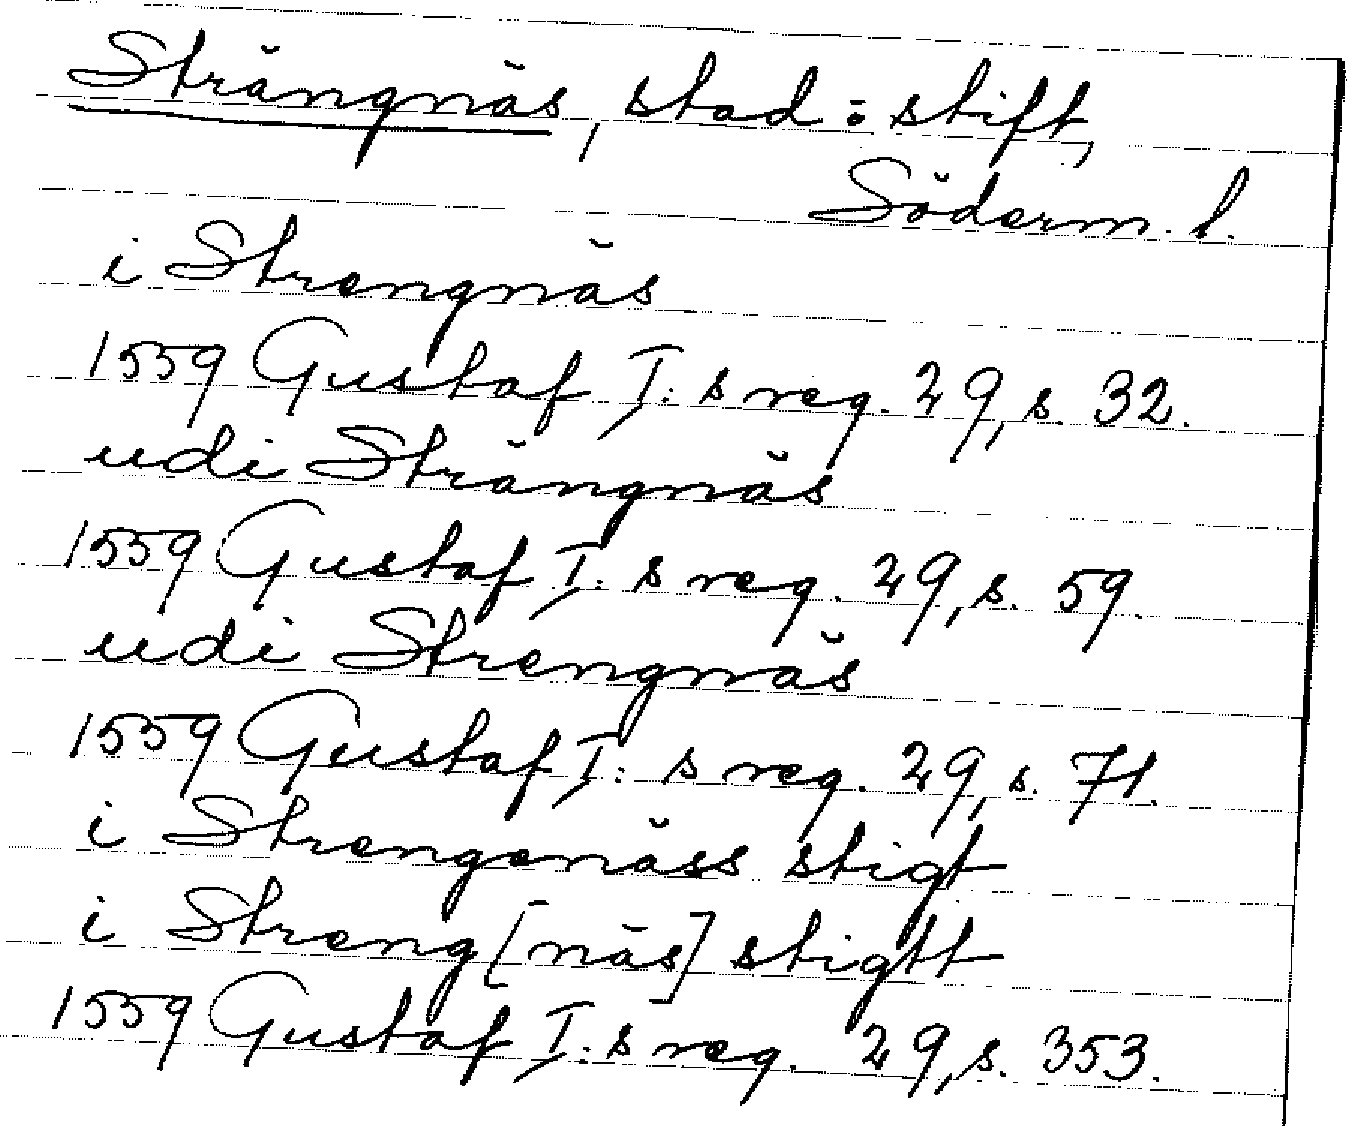 Strängnäs, stad o. stift,
Söderm. l.
i Strengnäs
1559 Gustaf I: s reg. 29, s. 32.
udi Strängnäs
1559 Gustaf I: s reg. 29, s. 59.
udi Strengnäs
1559 Gustaf I: s reg. 29, s. 71.
i Strengenäss stigt
i Streng[näs] stigtt
1559 Gustaf I: s reg. 29, s. 353.